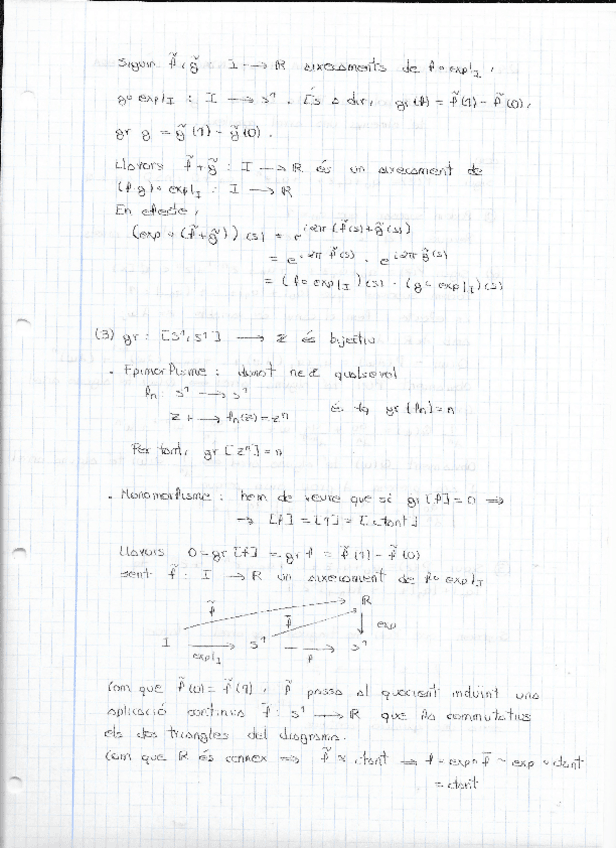 Siguin f̃, g̃ I → ℝ aixecaments de f∘exp|I ,
g∘exp|I : I → S¹. És a dir, gr(f) = f̃(1) - f̃(0),
gr g = g̃(1) - g̃(0).
Llavors f̃+g̃ : I → ℝ és un aixecament de
(f·g)∘exp|I : I → ℝ
En efecte,
(exp∘(f̃+g̃))(s) = e^{i2π(f̃(s)+g̃(s))}
= e^{i2πf̃(s)} · e^{i2πg̃(s)}
= (f∘exp|I)(s) · (g∘exp|I)(s)
(3) gr : [S¹,S¹] → Z és bijectiu
. Epimorfisme : donat n∈Z qualsevol
fn : S¹ → S¹ és tq gr(fn) = n
z ↦ fn(z) = zⁿ
Per tant, gr[zⁿ] = n
. Monomorfisme : hem de veure que si gr[f] = 0 ⇒
→ [f] = [1] = [ctant]
Llavors 0 = gr[f] = gr f = f̃(1) - f̃(0)
sent f̃ : I → ℝ un aixecament de f∘exp|I
f̃ ℝ
f̄ exp
I → S¹ → S¹
exp|I f
Com que f̃(0) = f̃(1), f̃ passa al quocient induint una
aplicació contínua f̄ : S¹ → ℝ que fa commutatius
els dos triangles del diagrama.
Com que ℝ és connex ⇒ f̃ ≈ ctant ⇒ f = exp∘f̄ ~ exp∘ctant
= ctant